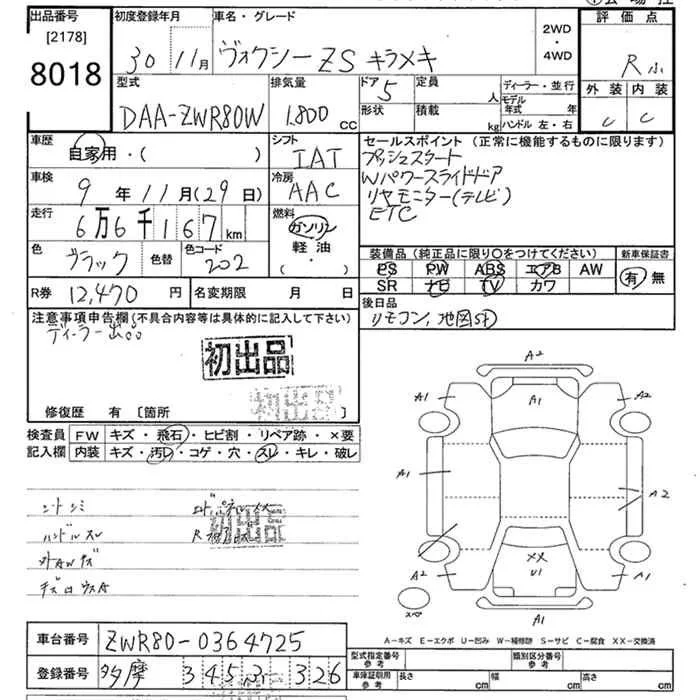 出品番号
[2178]
8018
初度登録年月
30 11月
車名・グレード
ヴォクシー ZS キラメキ
2WD
・
4WD
評価点
R
外装 内装
C C
型式
DAA-ZWR80W
排気量
1,800 cc
ドア 5
形状
定員 人
積載 kg
ディーラー・並行
モデル年式 年
ハンドル 左・右
車歴
自家用・( )
シフト
IAT
セールスポイント(正常に機能するものに限ります)
プッシュスタート
Wパワースライドドア
リヤモニター(テレビ)
ETC
車検
9年11月(29日)
冷房
AAC
走行
6万6千167km
燃料
ガソリン
軽油
( ・ )
色
ブラック
色替
色コード
202
装備品(純正品に限り〇をつけてください)
PS PW ABS エアB AW
SR ナビ TV カワ
新車保証書
有 無
R券 12,470円
名変期限 月 日
後日品
リモコン、地図SD
注意事項申告欄(不具合内容等は具体的に記入して下さい)
ディーラー出品
初出品
初出品
修復歴 有 [箇所 ]
検査員
記入欄
FW キズ・飛石・ヒビ割・リペア跡・×要
内装 キズ・汚レ・コゲ・穴・スレ・キレ・破レ
シートシミ
ハンドルスレ
初出品
A2
A1
A1
A2
A1
A2
A2
XX
U1
A1
A1
スペア
A-キズ E-エクボ U-凹み W-補修跡 S-サビ C-腐食 XX-交換済
車台番号 ZWR80-0364725
登録番号 多摩 345 326
型式指定番号
参考
類別区分番号
参考
車庫証明用
参考
長さ cm 幅 cm 高さ cm